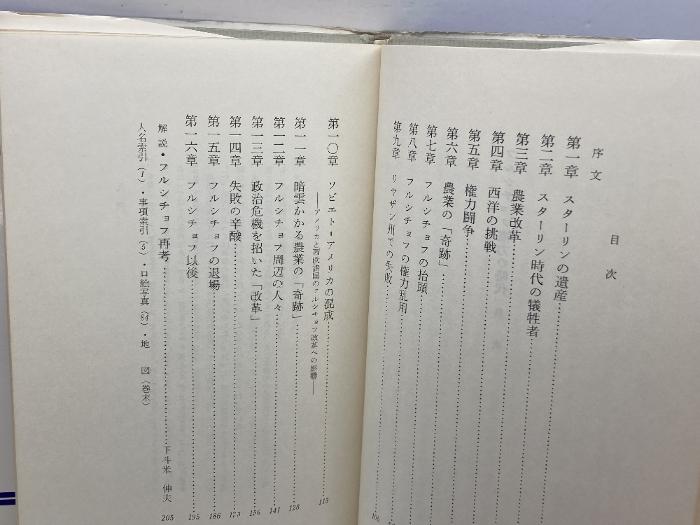 目次
序文
第一章 スターリンの遺産
第二章 スターリン時代の犠牲者
第三章 農業改革
第四章 西洋の挑戦
第五章 権力闘争
第六章 農業の「奇跡」
第七章 フルシチョフの抬頭
第八章 フルシチョフの権力乱用
第九章 リャザン州での失敗
第一〇章 ソビエト＝アメリカの混成 115
——アメリカと西欧諸国のフルシチョフ改革への影響——
第一一章 暗雲かかる農業の「奇跡」 128
第一二章 フルシチョフ周辺の人々 141
第一三章 政治危機を招いた「改革」 156
第一四章 失敗の辛酸 173
第一五章 フルシチョフの退場 186
第一六章 フルシチョフ以後 195
解説・フルシチョフ再考 下斗米 伸夫 205
人名索引(1)・事項索引(5)・口絵写真(84)・地 図(巻末)